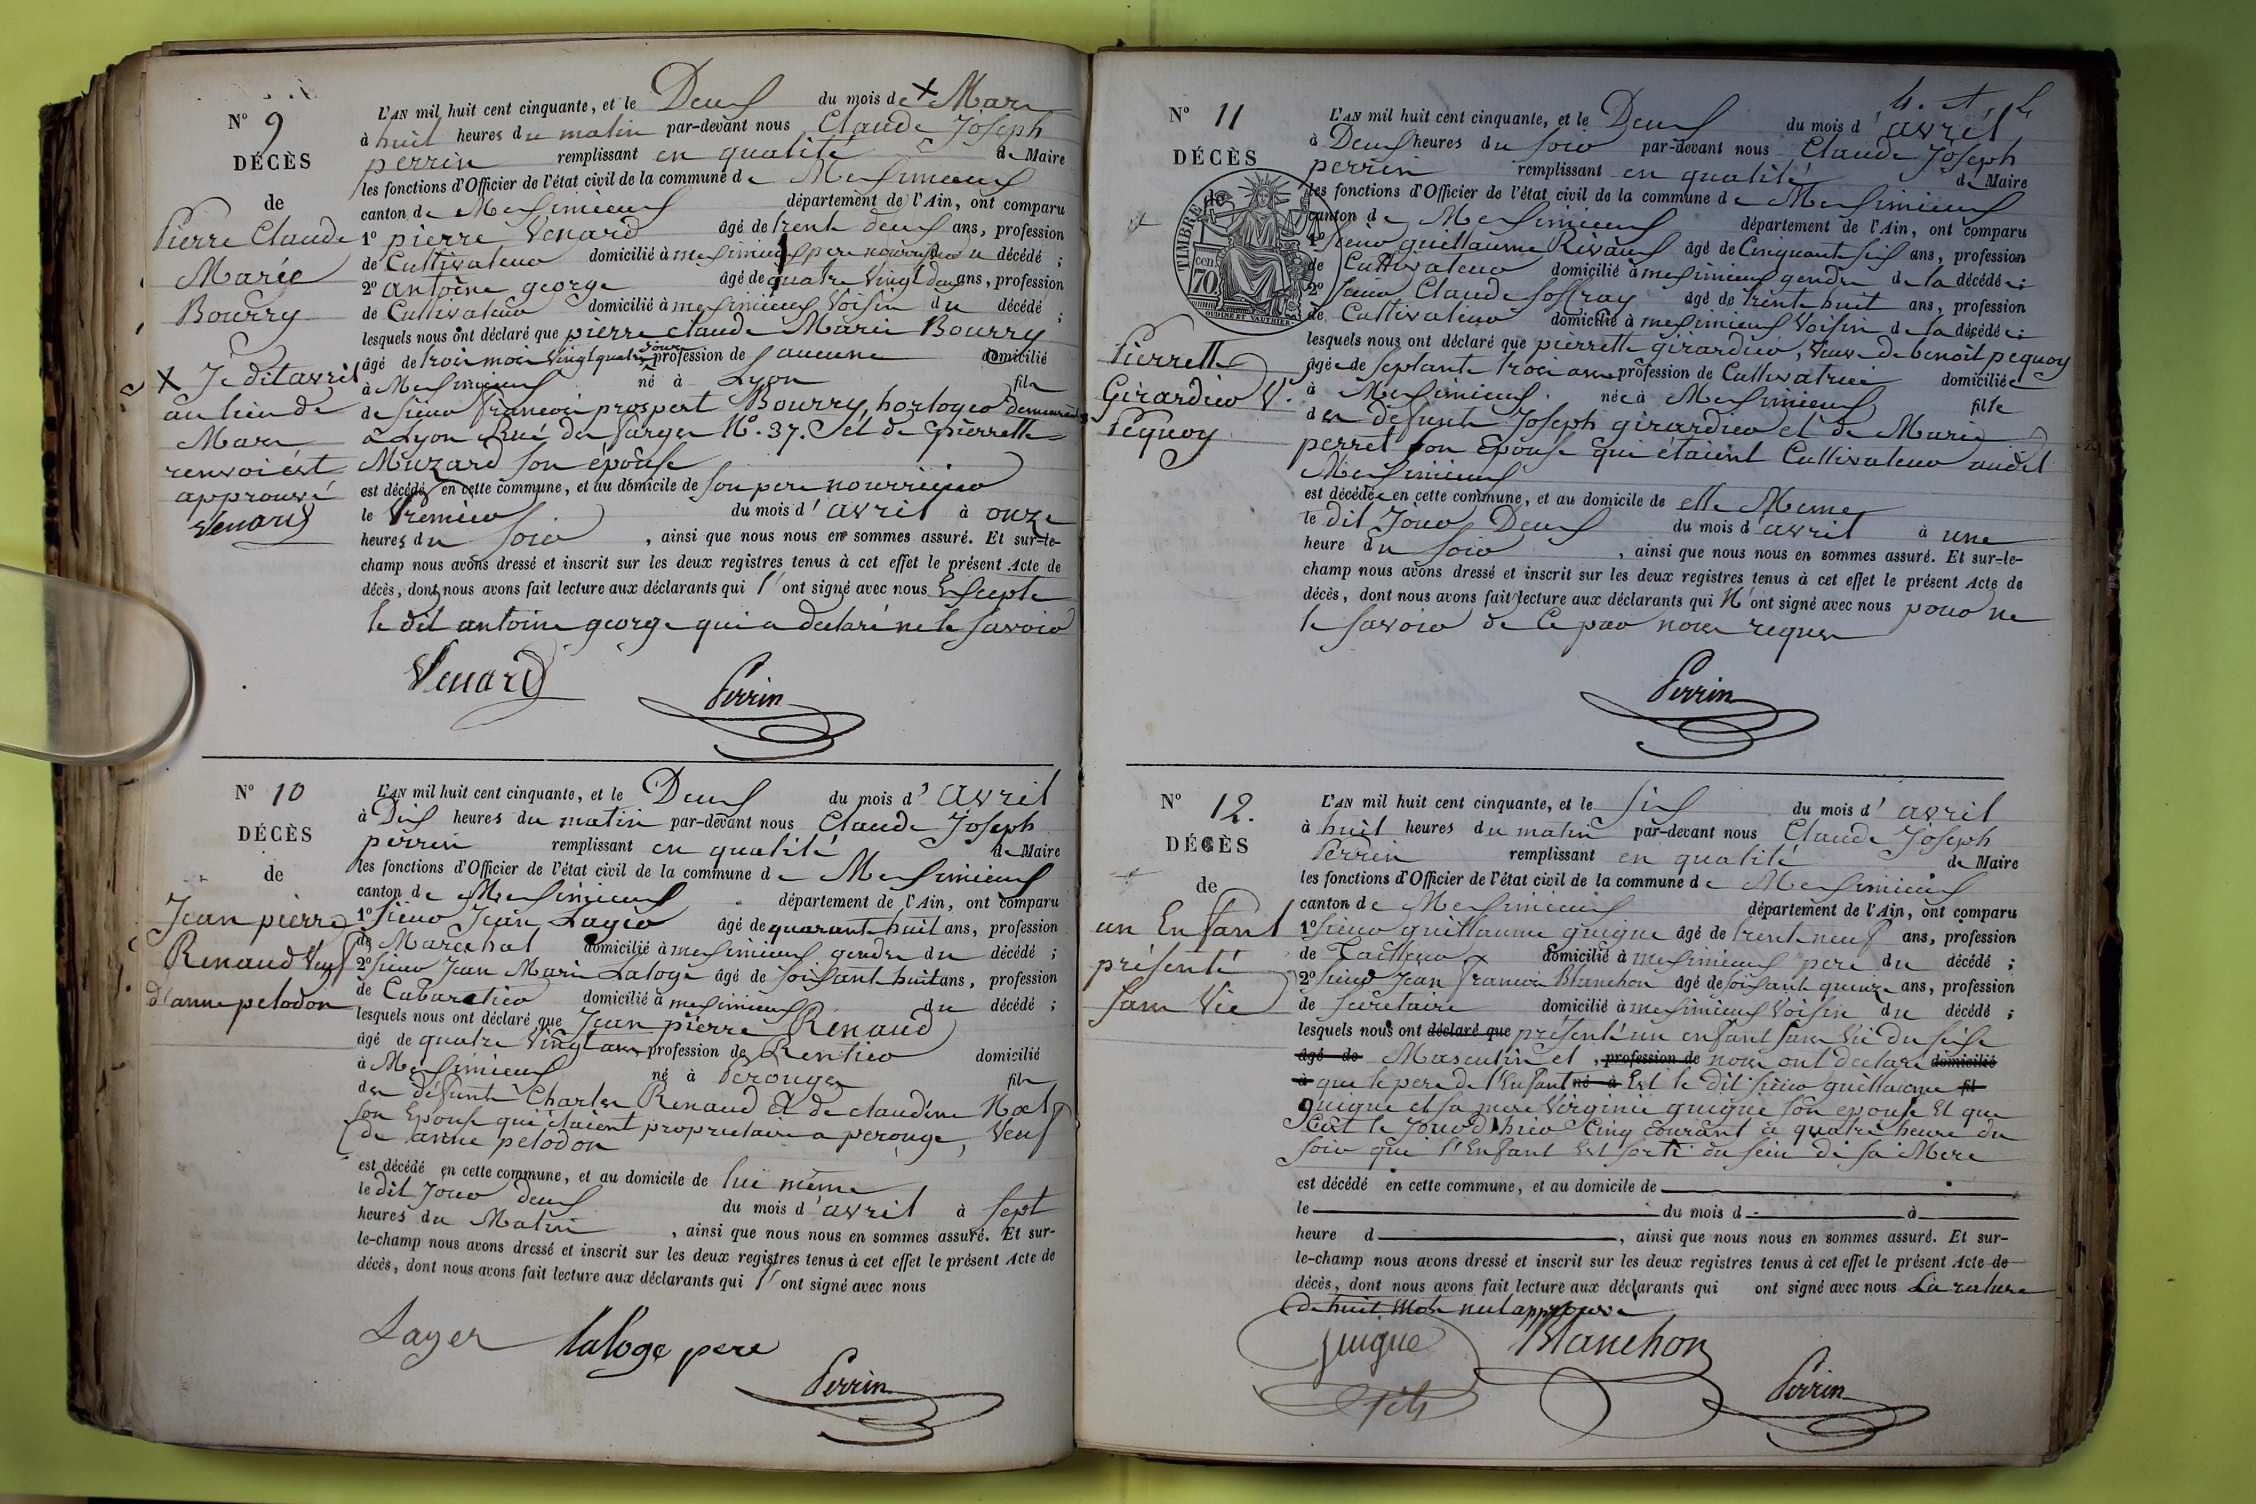 N° 9
DÉCÈS
de
Pierre Claude
Marie
Bourry
X Je dit avril
au lieu de
Mars
renvoi est
approuvé
Venard
L'AN mil huit cent cinquante, et le Deux du mois de X Mars
à huit heures du matin par-devant nous Claude Joseph
perrin remplissant en qualité de Maire
les fonctions d'Officier de l'état civil de la commune de Meximieux
canton de Meximieux département de l'Ain, ont comparu
1° pierre Venard âgé de trente deux ans, profession
de Cultivateur domicilié à meximieux pere nourricier du décédé ;
2° antoine george âgé de quatre vingt deux ans, profession
de Cultivateur domicilié à meximieux Voisin du décédé ;
lesquels nous ont déclaré que pierre claude Marie Bourry
âgé de trois mois vingt quatre jours profession de aucune domicilié
à Meximieux né à Lyon fils
de sieur françois prospert Bourry, horloger demeurant
a Lyon Rue des farges N°. 37. Et de pierrette
Muzard son épouse
est décédé en cette commune, et au domicile de son pere nourricier
le Premier du mois d'avril à onze
heures du soir, ainsi que nous nous en sommes assuré. Et sur-le-
champ nous avons dressé et inscrit sur les deux registres tenus à cet effet le présent Acte de
décès, dont nous avons fait lecture aux déclarants qui l'ont signé avec nous Excepte
le dit antoine george qui a declaré ne le savoir
Venard
Perrin
N° 10
DÉCÈS
de
Jean pierre
Renaud Veuf
d'anne pelodon
L'AN mil huit cent cinquante, et le Deux du mois d'avril
à Dix heures du matin par-devant nous Claude Joseph
perrin remplissant en qualité de Maire
les fonctions d'Officier de l'état civil de la commune de Meximieux
canton de Meximieux département de l'Ain, ont comparu
1° sieur Jean Lager âgé de quarante huit ans, profession
de Marechal domicilié à meximieux gendre du décédé ;
2° sieur Jean Marie Laloge âgé de soixant huit ans, profession
de Cabaretier domicilié à meximieux du décédé ;
lesquels nous ont déclaré que Jean pierre Renaud
âgé de quatre Vingt ans profession de Rentier domicilié
à Meximieux né à Perouges fils
des défunts Charles Renaud Et de claudine
son Epouse qui étaient proprietaire a perouge, Veuf
de anne pelodon
est décédé en cette commune, et au domicile de lui même
le dit Jour deux du mois d'avril à sept
heures du Matin, ainsi que nous nous en sommes assuré. Et sur-
le-champ nous avons dressé et inscrit sur les deux registres tenus à cet effet le présent Acte de
décès, dont nous avons fait lecture aux déclarants qui l'ont signé avec nous
Lager laloge pere
Perrin
N° 11
DÉCÈS
de
TIMBRE
cen. 70
OUDINE ET VAUTHIER
Pierrette
Girardier V.
Pequoy
L'AN mil huit cent cinquante, et le Deux du mois d'avril
à Deux heures du soir par-devant nous Claude Joseph
perrin remplissant en qualité de Maire
les fonctions d'Officier de l'état civil de la commune de Meximieux
canton de Meximieux département de l'Ain, ont comparu
1° sieur guillaume Rivaux âgé de Cinquant six ans, profession
de Cultivateur domicilié à meximieux gendre de la décédée ;
2° sieur Claude soffray âgé de trente huit ans, profession
de Cultivateur domicilié à meximieux Voisin de la décédée ;
lesquels nous ont déclaré que pierrette girardier, Veuve de benoit pequoy
âgée de septante trois ans profession de Cultivatrice domiciliée
à Meximieux née à Meximieux fille
des défunts Joseph girardier et de Marie
perret son Epouse qui étaient Cultivateur audit
Meximieux
est décédée en cette commune, et au domicile de elle Meme
le dit Jour Deux du mois d'avril à une
heure du soir, ainsi que nous nous en sommes assuré. Et sur-le-
champ nous avons dressé et inscrit sur les deux registres tenus à cet effet le présent Acte de
décès, dont nous avons fait lecture aux déclarants qui N'ont signé avec nous pour ne
le savoir de Ce par nous requis
Perrin
N° 12.
DÉCÈS
de
un Enfant
présenté
sans Vie
L'AN mil huit cent cinquante, et le six du mois d'avril
à huit heures du matin par-devant nous Claude Joseph
Perrin remplissant en qualité de Maire
les fonctions d'Officier de l'état civil de la commune de Meximieux
canton de Meximieux département de l'Ain, ont comparu
1° sieur guillaume guigue âgé de trente neuf ans, profession
de Tailleur domicilié à meximieux pere du décédé ;
2° sieur Jean françois Blanchon âgé de soixant quinze ans, profession
de secretaire domicilié à meximieux Voisin du décédé ;
lesquels nous ont déclaré que présenté un enfant sans Vie du sexe
âgé de Masculin et, profession de nous ont declaré domicilié
à que le pere de l'Enfant né à Est le dit sieur guillaume fil
guigue et sa mere Virginie guigue son epouse Et que
C'est le Jour d'hier Cinq courant à quatre heure du
soir que l'Enfant Est sorti du sein de sa Mere
est décédé en cette commune, et au domicile de
le du mois d à
heure d, ainsi que nous nous en sommes assuré. Et sur-
le-champ nous avons dressé et inscrit sur les deux registres tenus à cet effet le présent Acte de
décès, dont nous avons fait lecture aux déclarants qui ont signé avec nous La rature
de huit mots nul approuvé
guigue Blanchon
fils Perrin